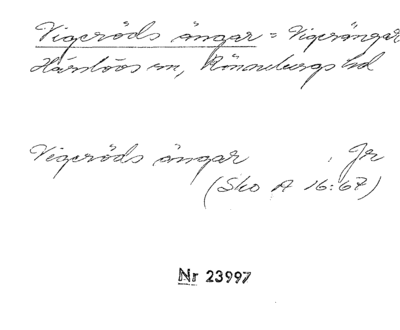 Vigeröds ängar = Vigerängar
Härslövs sn, Rönnebergs hd
Vigeröds ängar Jr
(Sko A 16:67)
Nr 23997